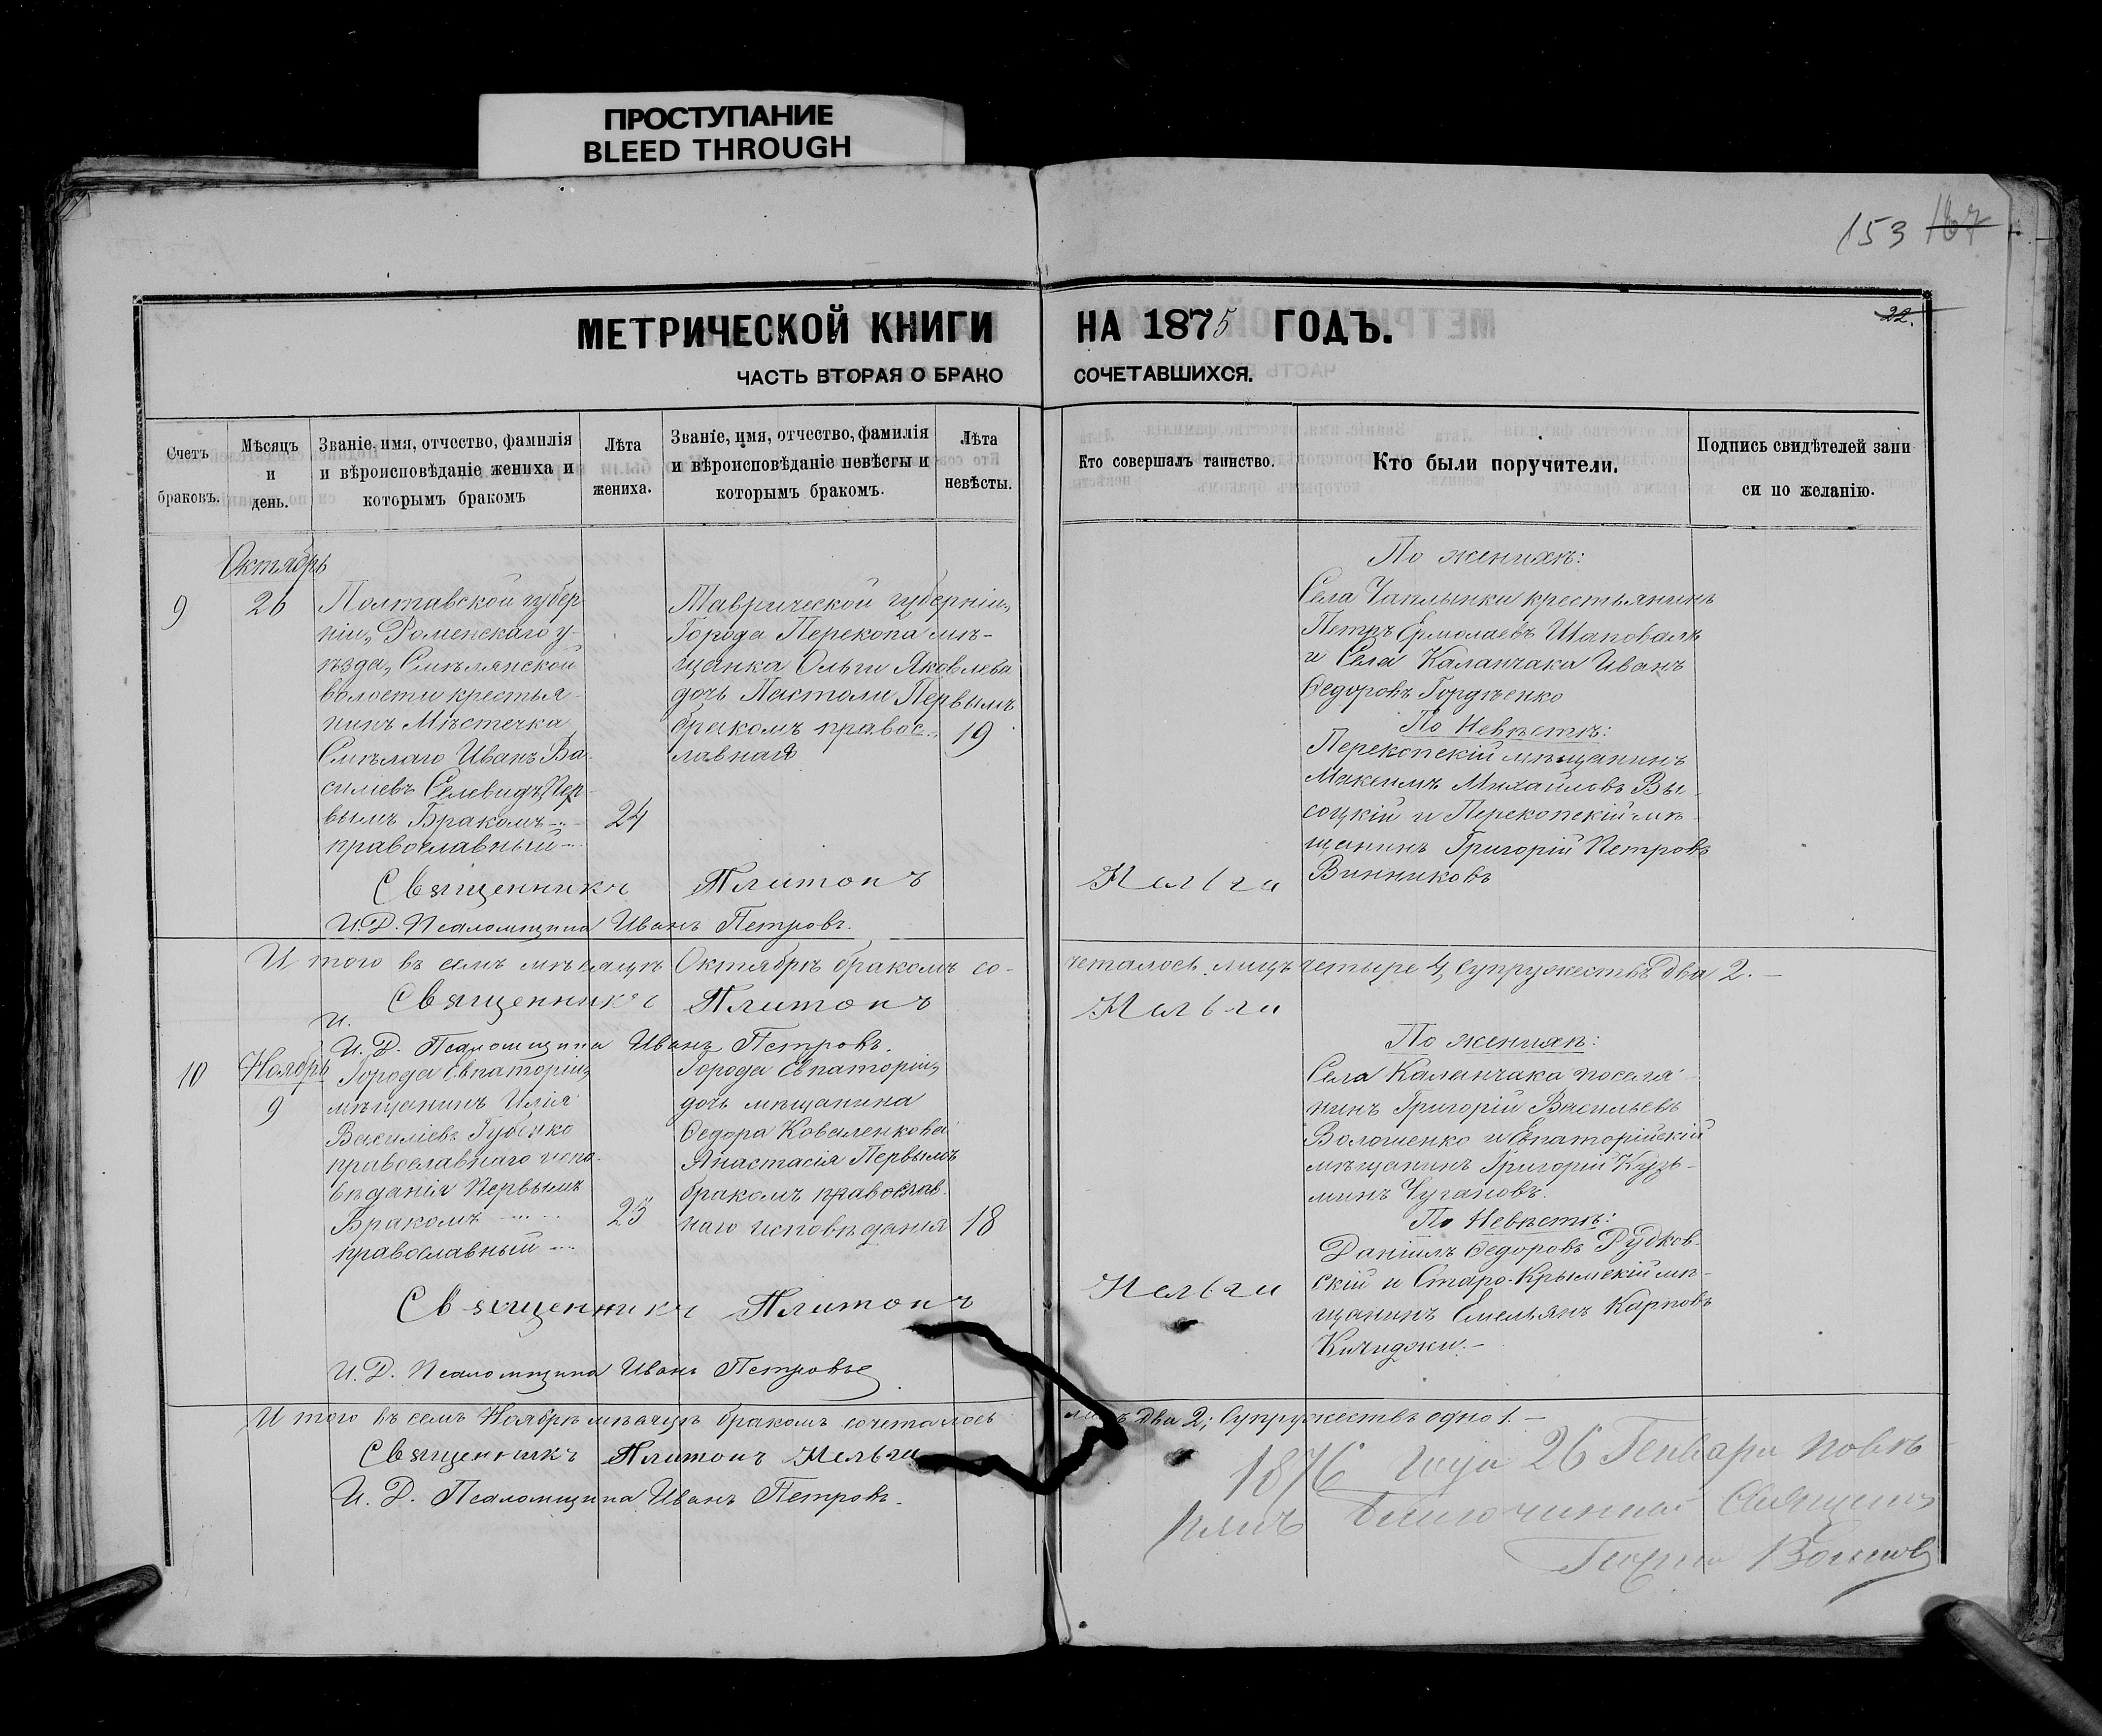 ПРОСТУПАНИЕ
BLEED THROUGH
153 167
22.
МЕТРИЧЕСКОЙ КНИГИ НА 1875 ГОДЪ.
ЧАСТЬ ВТОРАЯ О БРАКО СОЧЕТАВШИХСЯ.
Счетъ браковъ.
Мѣсяцъ и день.
Званіе, имя, отчество, фамилія
и вѣроисповѣданіе жениха и
которымъ бракомъ
Лѣта жениха.
Званіе, имя, отчество, фамилія
и вѣроисповѣданіе невѣсты и
которымъ бракомъ.
Лѣта невѣсты.
Кто совершалъ таинство.
Кто были поручители.
Подпись свидѣтелей запи
си по желанію.
9
Октябрь
26
Полтавской губер
ніи, Роменскаго у-
ѣзда, Смѣлянской
волости крестья-
нинъ Мѣстечка
Смѣлаго Иванъ Ва-
силіевъ Селевидъ, Пер-
вымъ Бракомъ
православный
24
Таврической губерніи,
Города Перекопа мѣ-
щанка Ольги Яковлева
дочь Пактали Первымъ
бракомъ правос-
лавная
19
По женихѣ:
Села Чаплынки крестьянинъ
Петръ Ермолаевъ Шаповалъ
и Села Каланчака Иванъ
Ѳедоровъ Гордѣенко
По Невѣстѣ:
Перекопскій мѣщанинъ
Максимъ Михайловъ Вы-
соцкій и Перекопскій мѣ-
щанинъ Григорій Петровъ
Винниковъ
Священникъ Платонъ
И. Д. Псаломщика Иванъ Петровъ.
И того въ семъ мѣсяцѣ Октябрѣ бракомъ со-
четалось лицъ четыре 4, супружествъ два 2.
Священникъ Платонъ
И.
И. Д. Псаломщика Иванъ Петровъ.
10
Ноябрь
9
Города Евпаторіи,
мѣщанинъ Илія
Василіевъ Губенко
православнаго испо-
вѣданія Первымъ
Бракомъ
православный
23
Города Евпаторіи,
дочь мѣщанина
Ѳедора Коваленкова
Анастасія Первымъ
бракомъ православ-
наго исповѣданія
18
По женихѣ:
Села Каланчака поселя-
нинъ Григорій Васильевъ
Волошенко и Евпаторійскій
мѣщанинъ Григорій Кузь-
минъ Чугановъ.
По Невѣстѣ:
Даніилъ Ѳедоровъ Рудков-
скій и Старо-Крымскій мѣ-
щанинъ Емельянъ Карповъ
Кичиджи.
Священникъ Платонъ
И. Д. Псаломщика Иванъ Петровъ
И того въ семъ Ноябрѣ мѣсяцѣ бракомъ сочеталось
лицъ два 2; супружествъ одно 1.
Священникъ Платонъ
И. Д. Псаломщика Иванъ Петровъ.
1876 года 26 Генваря повѣ
рилъ Благочинный Священ